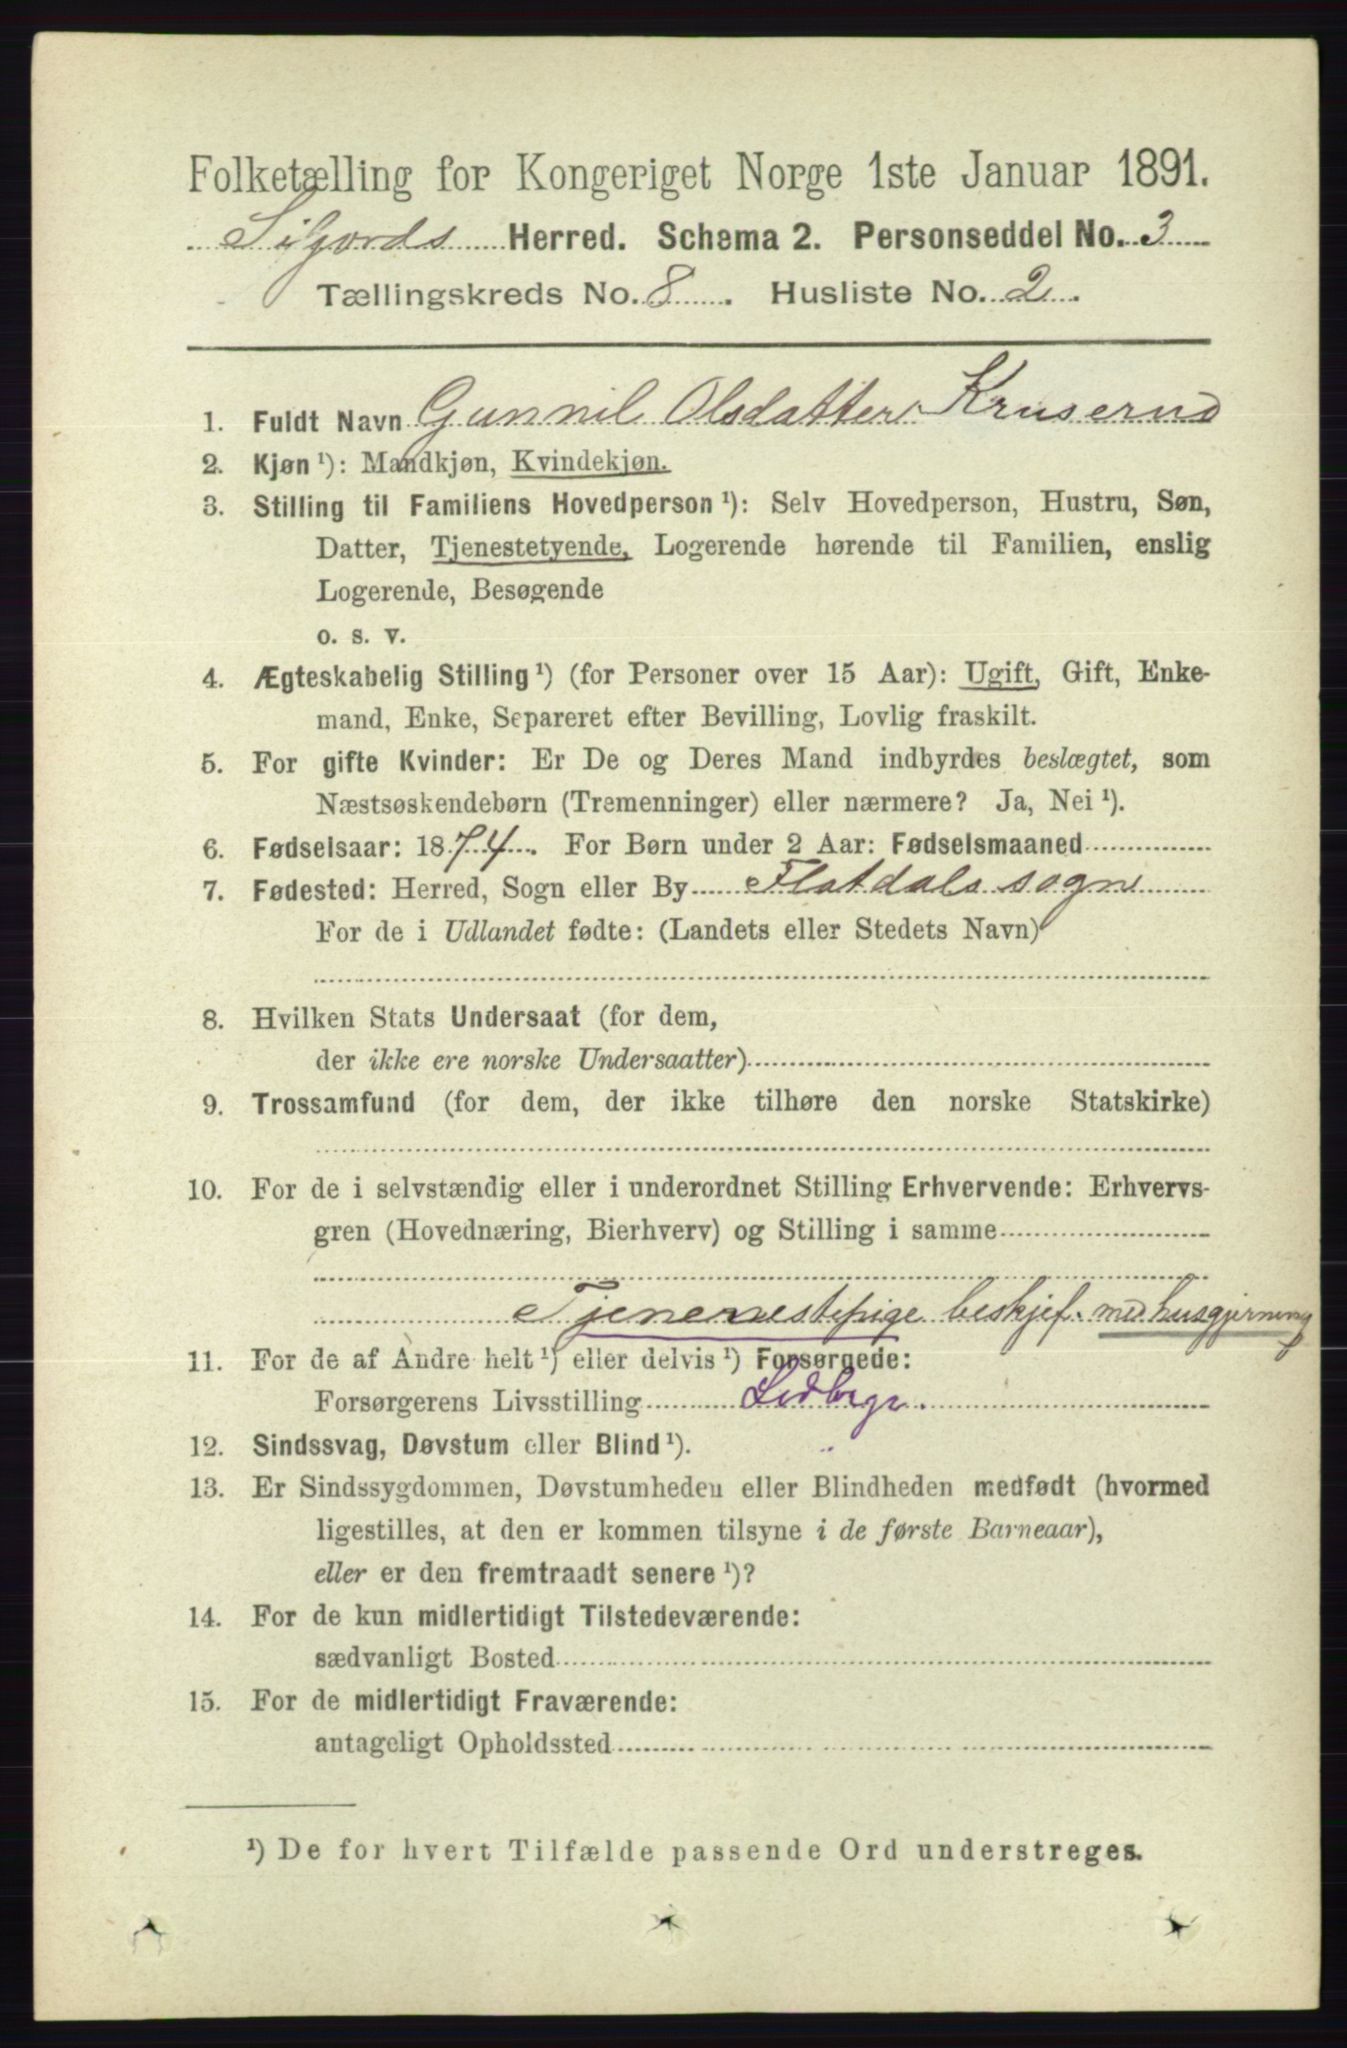 Folketælling for Kongeriget Norge 1ste Januar 1891.
Siljords Herred. Schema 2. Personseddel No. 3
Tællingskreds No. 8. Husliste No. 2.
1. Fuldt Navn Gunnil Olsdatter Kruserud
2. Kjøn ¹): Mandkjøn, Kvindekjøn.
3. Stilling til Familiens Hovedperson ¹): Selv Hovedperson, Hustru, Søn,
Datter, Tjenestetyende, Logerende hørende til Familien, enslig
Logerende, Besøgende
o. s. v.
4. Ægteskabelig Stilling ¹) (for Personer over 15 Aar): Ugift, Gift, Enke-
mand, Enke, Separeret efter Bevilling, Lovlig fraskilt.
5. For gifte Kvinder: Er De og Deres Mand indbyrdes beslægtet, som
Næstsøskendebørn (Tremenninger) eller nærmere? Ja, Nei ¹).
6. Fødselsaar: 1874. For Børn under 2 Aar: Fødselsmaaned
7. Fødested: Herred, Sogn eller By Flatdals sogn
For de i Udlandet fødte: (Landets eller Stedets Navn)
8. Hvilken Stats Undersaat (for dem,
der ikke ere norske Undersaatter)
9. Trossamfund (for dem, der ikke tilhøre den norske Statskirke)
10. For de i selvstændig eller i underordnet Stilling Erhvervende: Erhvervs-
gren (Hovednæring, Bierhverv) og Stilling i samme
Tjenerestepige beskjef. med husgjerning
11. For de af Andre helt ¹) eller delvis ¹) Forsørgede:
Forsørgerens Livsstilling
12. Sindssvag, Døvstum eller Blind ¹).
13. Er Sindssygdommen, Døvstumheden eller Blindheden medfødt (hvormed
ligestilles, at den er kommen tilsyne i de første Barneaar),
eller er den fremtraadt senere ¹)?
14. For de kun midlertidigt Tilstedeværende:
sædvanligt Bosted
15. For de midlertidigt Fraværende:
antageligt Opholdssted
¹) De for hvert Tilfælde passende Ord understreges.